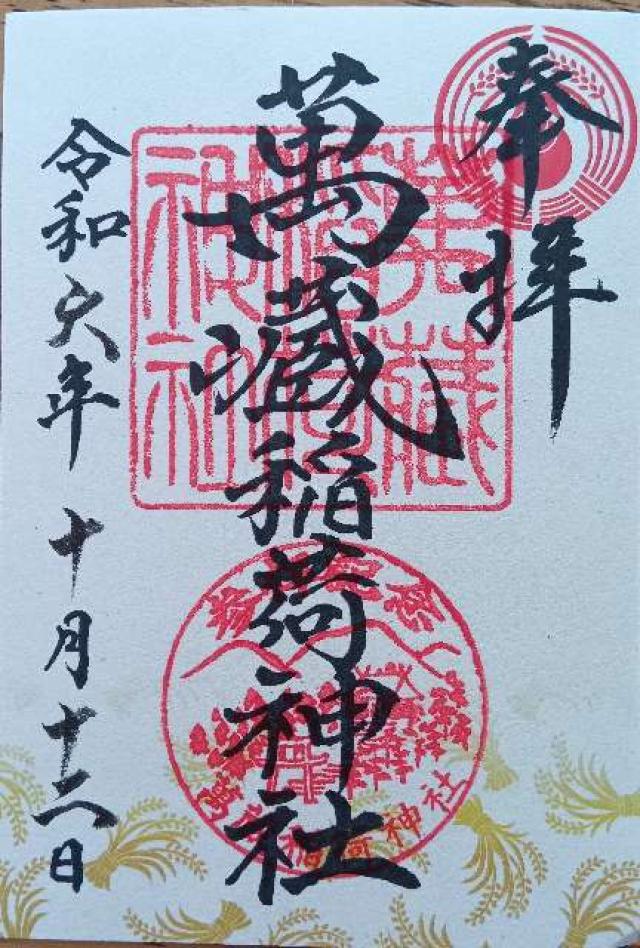 奉拝
萬蔵稲荷神社
令和六年十月十二日
萬蔵稲荷神社
参拝記念
萬蔵稲荷神社